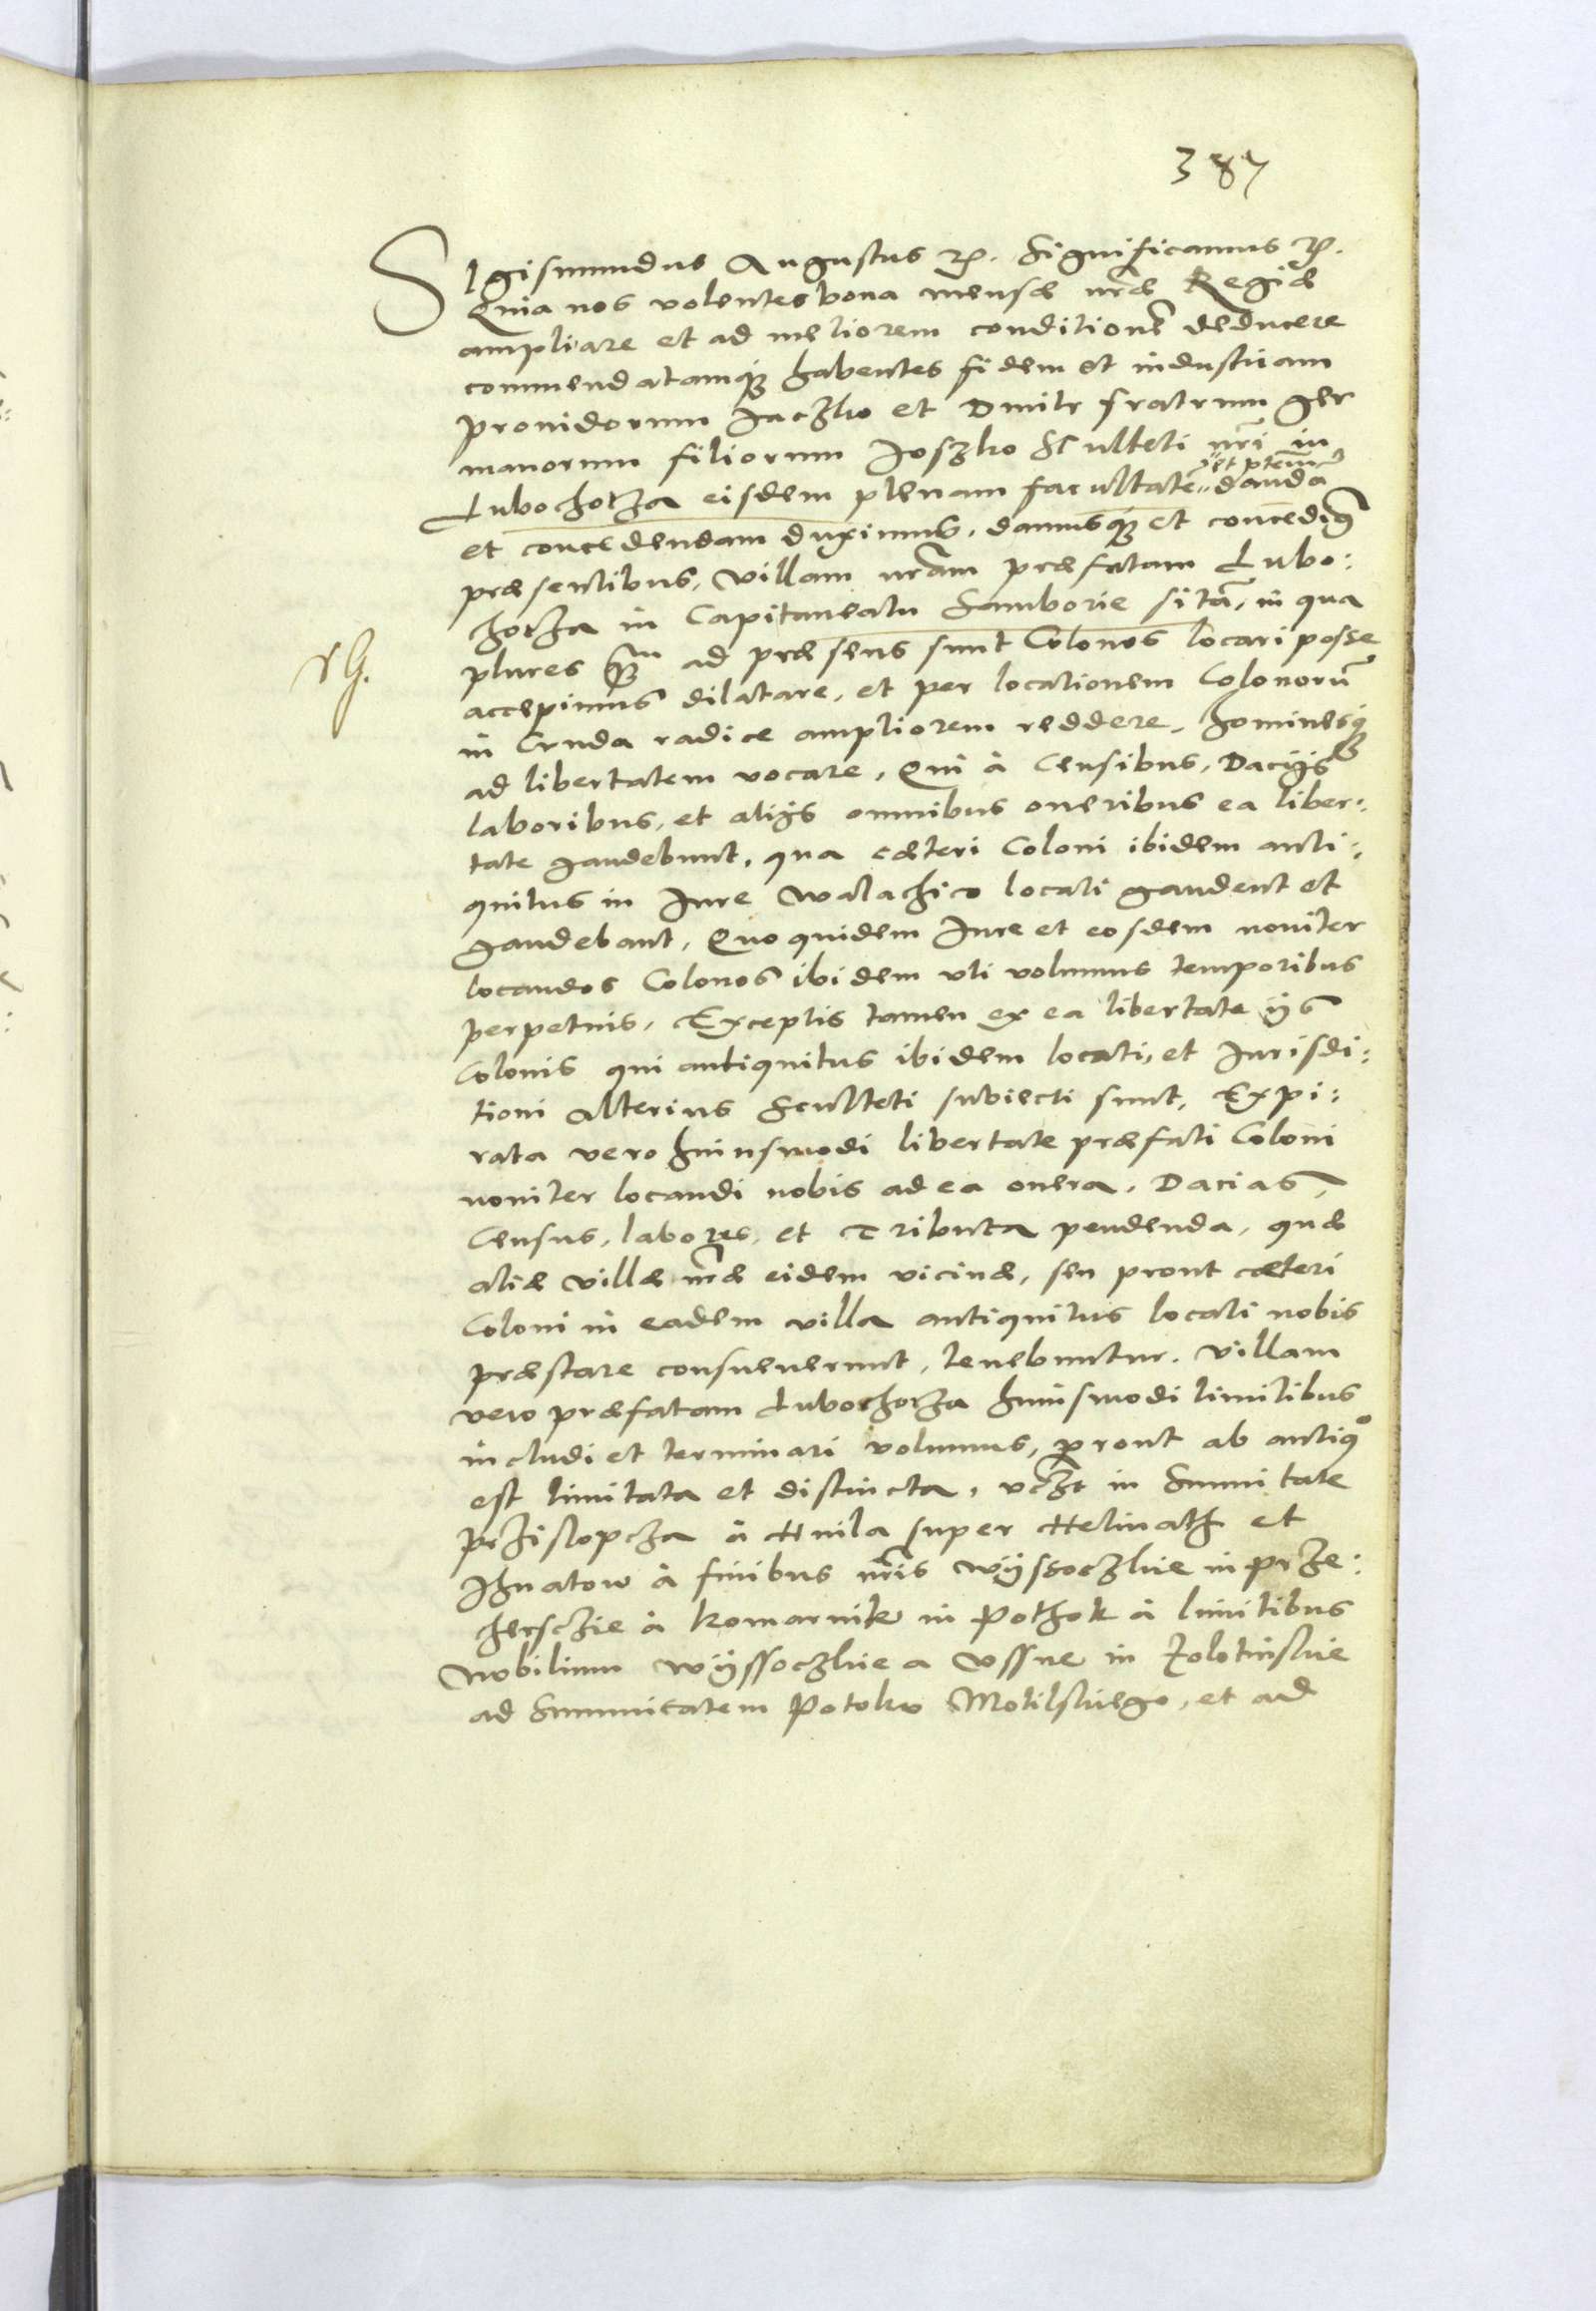 387
SIgismundus Augustus etc. Significamus etc.
Quia nos volentes bona mensæ nr̃æ Regiæ
ampliare et ad meliorem conditionẽ deducere
commendatamq; habentes fidem et industriam
prouidorum Iaczko et Dmitr fratrum ger
manorum filiorum Joszko Sculteti nr̃i in
et ptem̃
Lubochorza eisdem plenam facultatẽ dandã
et concedendam duximus, damusq; et concedim9
præsentibus, villam nr̃am præfatam Lubo:
chorza in Capitaneatu Samborien̄ sitã, in qua
plures q̃ ad præsens sunt Colonos locari posse
accepimus dilatare, et per locationem Colonorũ
in Cruda radice ampliorem reddere, hominesq;
ad libertatem vocare, Qui à Censibus, Dacijs
laboribus, et alijs omnibus oneribus ea liber:
tate gaudebunt, qua cæteri Coloni ibidem anti:
quitus in Iure Walachico locati gaudent et
gaudebant, Quo quidem Iure et eosdem nouiter
locandos Colonos ibidem vti volumus temporibus
perpetuis, Exceptis tamen ex ea libertate ijs
Colonis qui antiquitus ibidem locati, et Iurisdi:
tioni alterius Sculteti subiecti sunt, Expi:
rata vero huiusmodi libertate præfati Coloni
nouiter locandi nobis ad ea onera, Dacias,
Census, labores, et Tributa pendenda, quæ
aliæ villæ nr̃æ eidem vicinæ, seu prout cæteri
Coloni in eadem villa antiquitus locati nobis
præstare consueuerunt, tenebuntur. Villam
vero præfatam Lubochorza huiusmodi limitibus
includi et terminari volumus, prout ab antiqº
est limitata et distincta, vczt in Sumitate
Przislopcza à Hnila super Helmath et
Ihnatow à finibus nr̃is Wÿssoczkie in prze:
chersczie à Komarnik in Pothok à limitibus
Nobilium Wÿssoczkie a Vssne in Zolotinskie
ad Summitatem Potoku Motilskiego, et ad